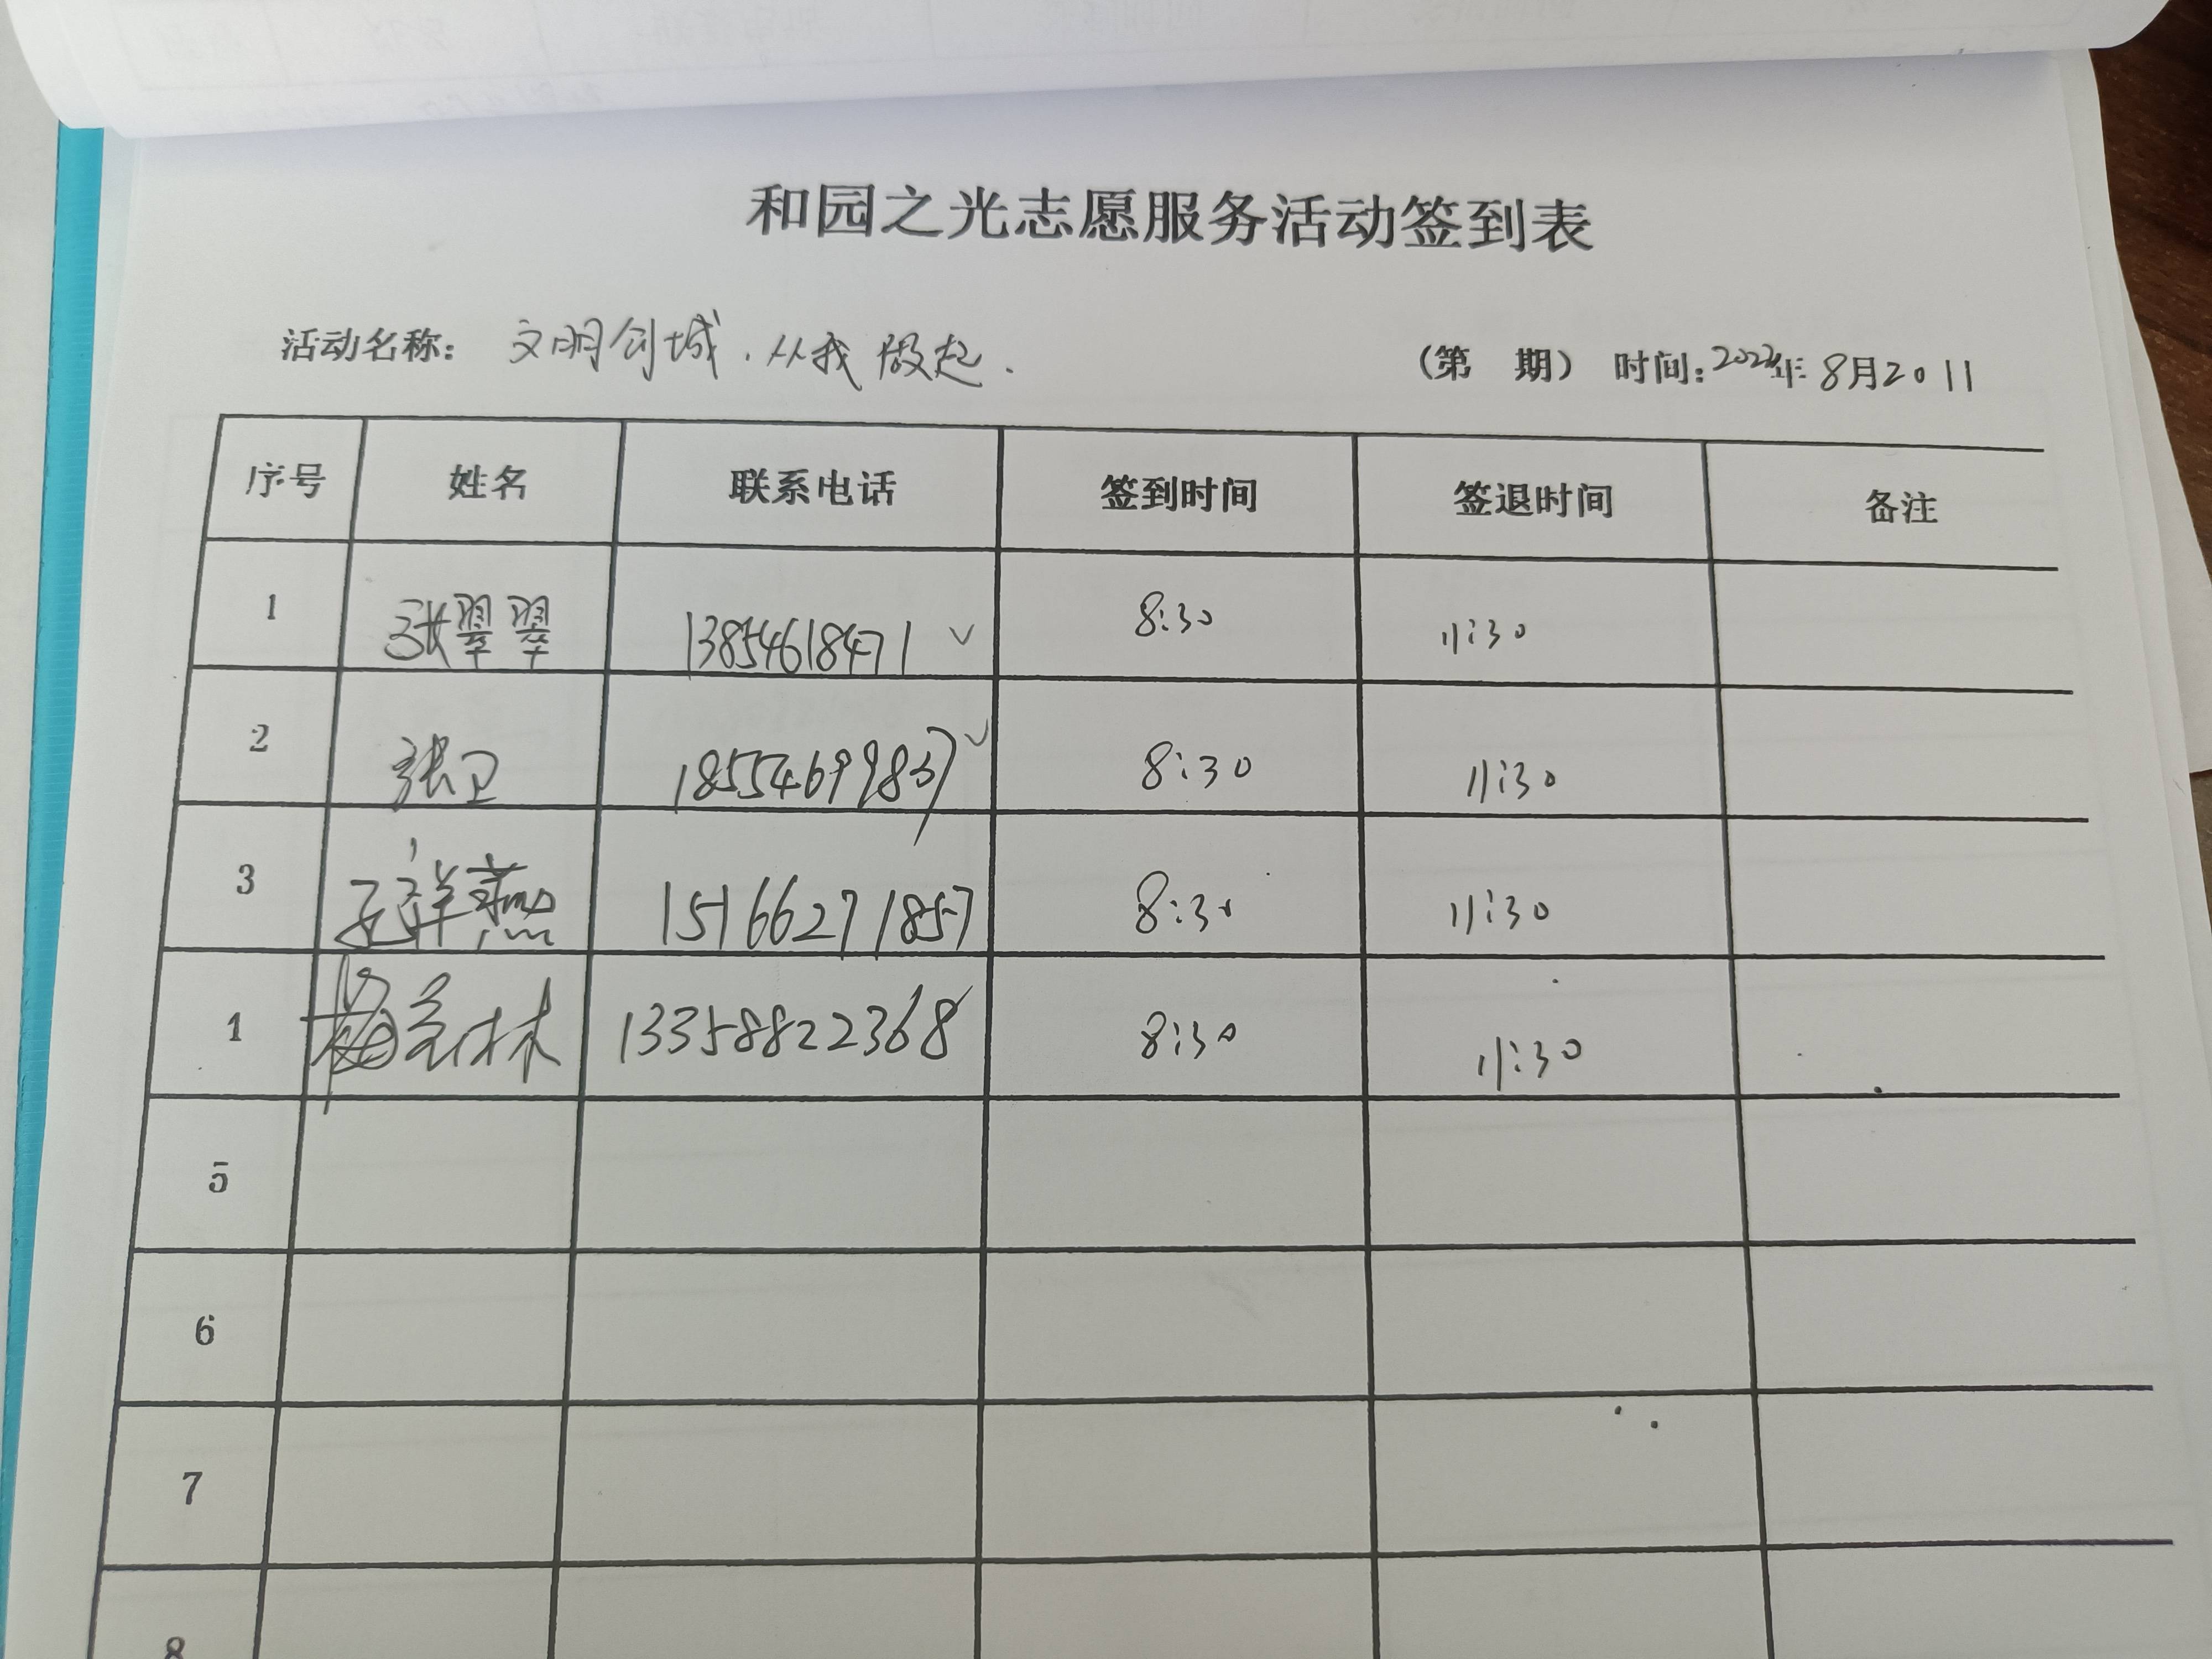 和园之光志愿服务活动签到表
活动名称: 文明创城.从我做起. (第 期) 时间: 年 8月2011
序号 姓名 联系电话 签到时间 签退时间 备注
1 张翠翠 13854618471 8:30 11:30
2 张卫 18554699837 8:30 11:30
3 祥燕 15166271857 8:30 11:30
1 林 13358822368 8:30 11:30
5
6
7
8